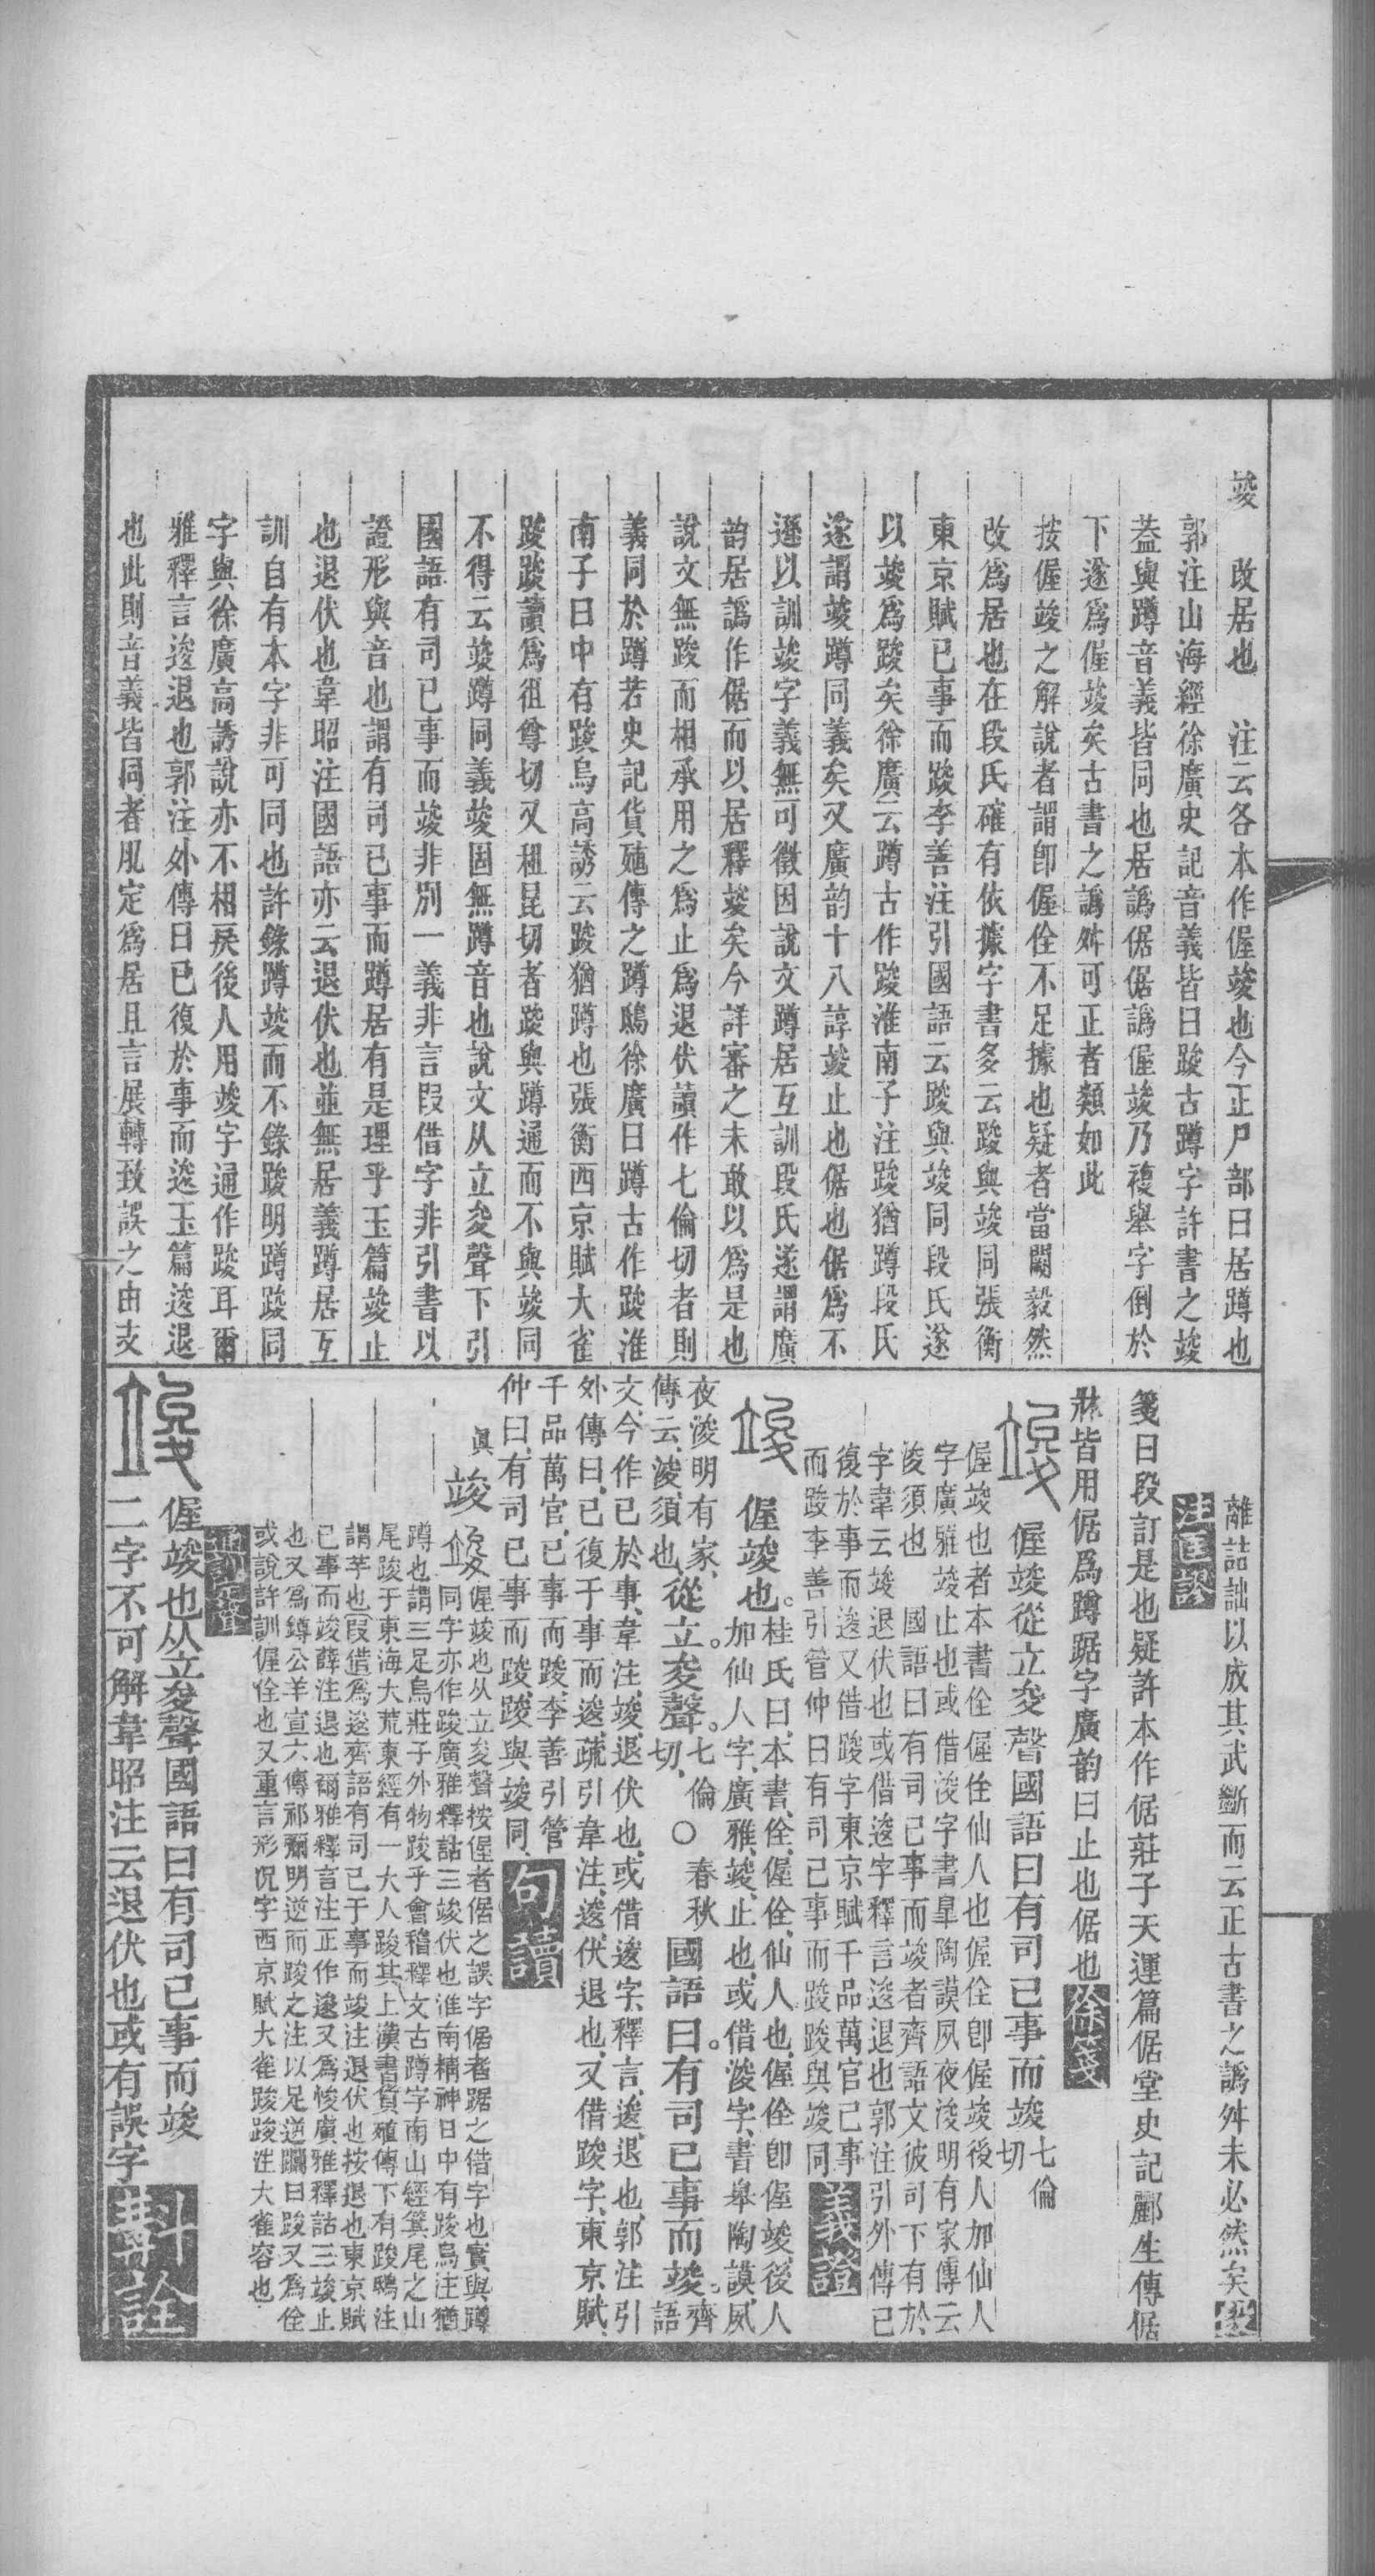 竣　改居也　注云各本作偓竣也今正尸部曰居蹲也
郭注山海經徐廣史記音義皆曰踆古蹲字許書之竣
葢與蹲音義皆同也居譌倨倨譌偓竣乃複舉字倒於
下遂爲偓竣矣古書之譌舛可正者類如此
按偓竣之解說者謂卽偓佺不足據也疑者當闕毅然
改爲居也在段氏確有依據字書多云踆與竣同張衡
東京賦已事而踆李善注引國語云踆與竣同段氏遂
以竣爲踆矣徐廣云蹲古作踆淮南子注踆猶蹲段氏
遂謂竣蹲同義矣又廣韵十八諄竣止也倨也倨爲不
遜以訓竣字義無可徵因說文蹲居互訓段氏遂謂廣
韵居譌作倨而以居釋竣矣今詳審之未敢以爲是也
說文無踆而相承用之爲止爲退伏讀作七倫切者則
義同於蹲若史記貨殖傳之蹲鴟徐廣曰蹲古作踆淮
南子日中有踆烏高誘云踆猶蹲也張衡西京賦大雀
踆踆讀爲徂尊切又租昆切者踆與蹲通而不與竣同
不得云竣蹲同義竣固無蹲音也說文从立夋聲下引
國語有司已事而竣非別一義非言叚借字非引書以
證形與音也謂有司已事而蹲居有是理乎玉篇竣止
也退伏也韋昭注國語亦云退伏也並無居義蹲居互
訓自有本字非可同也許錄蹲竣而不錄踆明蹲踆同
字與徐廣高誘說亦不相戾後人用竣字通作踆耳爾
雅釋言逡退也郭注外傳曰已復於事而逡玉篇逡退
也此則音義皆同者肊定爲居且言展轉致誤之由支
離詰詘以成其武斷而云正古書之譌舛未必然矣段
注匡謬
箋曰段訂是也疑許本作倨莊子天運篇倨堂史記酈生傳倨
牀皆用倨爲蹲踞字廣韵曰止也倨也徐箋
竣偓竣從立夋聲國語曰有司已事而竣七倫切
偓竣也者本書佺偓佺仙人也偓佺卽偓竣後人加仙人
字廣雅竣止也或借浚字書臯陶謨夙夜浚明有家傳云
浚須也　國語曰有司已事而竣者齊語文彼司下有於
字韋云竣退伏也或借逡字釋言逡退也郭注引外傳已
復於事而逡又借踆字東京賦千品萬官已事
而踆李善引管仲曰有司已事而踆踆與竣同義證
竣偓竣也。桂氏曰、本書、佺、偓佺、仙人也、偓佺卽偓竣、後人
加仙人字、廣雅、竣、止也、或借浚字、書皋陶謨、夙
夜浚明有家、
傳云、浚、須也、從立夋聲。七倫切、○春秋國語曰。有司已事而竣。齊語
文、今作已於事、韋注、竣、退伏也、或借逡字、釋言、逡、退也、郭注引
外傳曰、已復于事而逡、疏引韋注、逡、伏退也、又借踆字、東京賦、
千品萬官、已事而踆、李善引管
仲曰、有司已事而踆、踆、與竣同、句讀
眞
竣竣偓竣也从立夋聲按偓者倨之誤字倨者踞之借字也實與蹲
同字亦作踆廣雅釋詁三竣伏也淮南精神日中有踆烏注猶
蹲也謂三足烏莊子外物踆乎會稽釋文古蹲字南山經箕尾之山
尾踆于東海大荒東經有一大人踆其上漢書貨殖傳下有踆鴟注
謂芋也叚借爲逡齊語有司已于事而竣注退伏也按退也東京賦
已事而竣薛注退也爾雅釋言注正作逡又爲悛廣雅釋詁三竣止
也又爲蹲公羊宣六傳祁彌明逆而踆之注以足逆躢曰踆又爲佺
或說許訓偓佺也又重言形況字西京賦大雀踆踆注大雀容也
通訓定聲
竣偓竣也从立夋聲國語曰有司已事而竣
二字不可解韋昭注云退伏也或有誤字斠詮